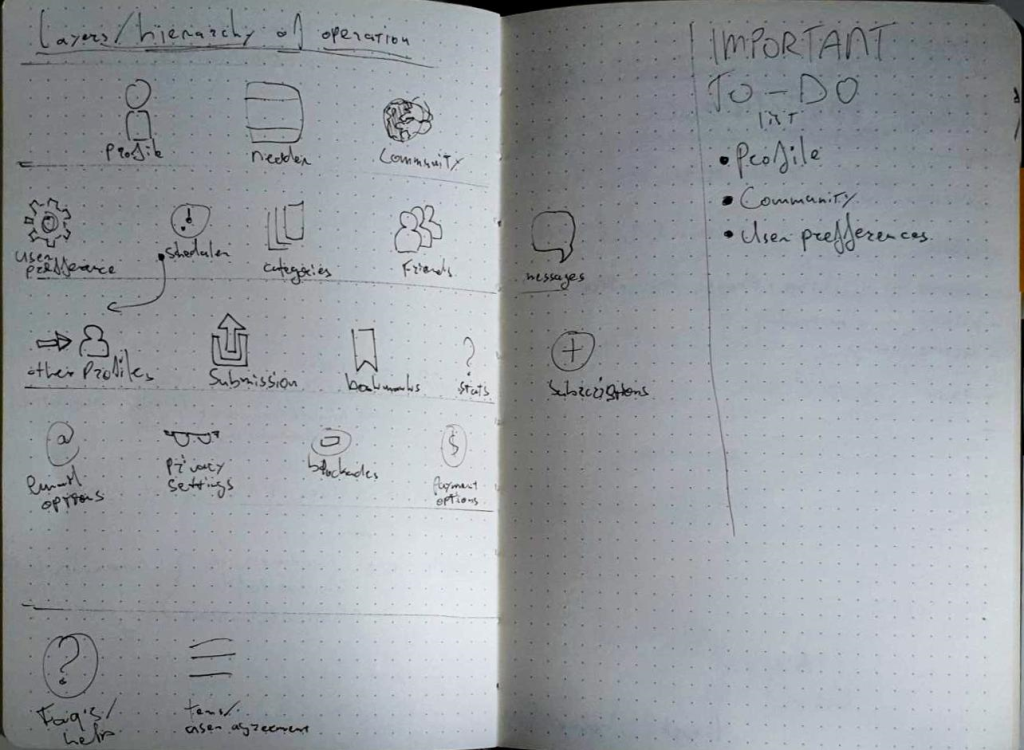 Layers/hierarchy of operation
Profile
Community
User
prefference
Shedaler
categories
Friends
messages
other Profiles
Submission
bookmarks
?
stats
Subscriptions
@
Email
options
Privacy
settings
blockades
$
Payment
options
?
Faq's/
help
user agreement
IMPORTANT
TO-DO
LIST
• Profile
• Community
• User prefferences